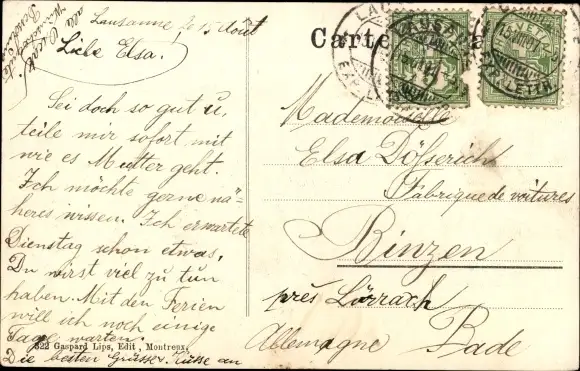 Lausanne, 15 Août
Liebe Elsa!
Sei doch so gut u,
teile mir sofort mit
wie es Mutter geht.
Ich möchte gerne nä=
heres wissen. Ich erwartete
Dienstag schon etwas,
Du wirst viel zu tun
haben. Mit den Ferien
will ich noch einige
Tage warten.
Die besten Grüsse u. Küsse an
alle
522 Gaspard Lips, Edit, Montreux.
Carte
Mademoiselle
Elsa
Fabrique de voitures
Binzen
près Lörrach
Allemagne Bade